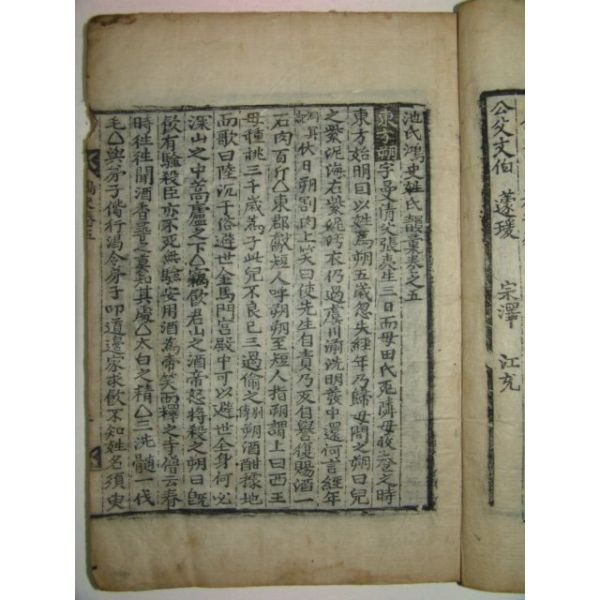 公父文伯 蘧瑗 宗澤 江充
池氏鴻史姓氏韻彙卷之五
東方朔字曼倩父張夷生三日而母田氏死隣母收養之時
東方始明曰以姓焉朔五歲忽失經年乃歸母問之朔曰兒
之紫泥海有紫泥汚衣仍過虞川湔洗朝發中還何言經年
耳伏日朔割肉上笑曰使先生自責乃反自譽復賜酒一
石肉百斤△東郡獻短人呼朔朔至短人指朔謂上曰西王
母種桃三千歲爲子此兒不良已三過偸之朔酒酣據地
而歌曰陸沉于俗避世金馬門宮殿中可以避世全身何必
深山之中蒿廬之下△竊飮君山之酒帝怒將殺之朔曰旣
飮有驗殺臣亦不死無驗安用酒爲帝笑而釋之寺僧云春
時往往聞酒香尋之莫知其處△太白之精△三洗髓一伐
毛△與弟子偕行渴令弟子叩道邊家求飮不知姓名須臾